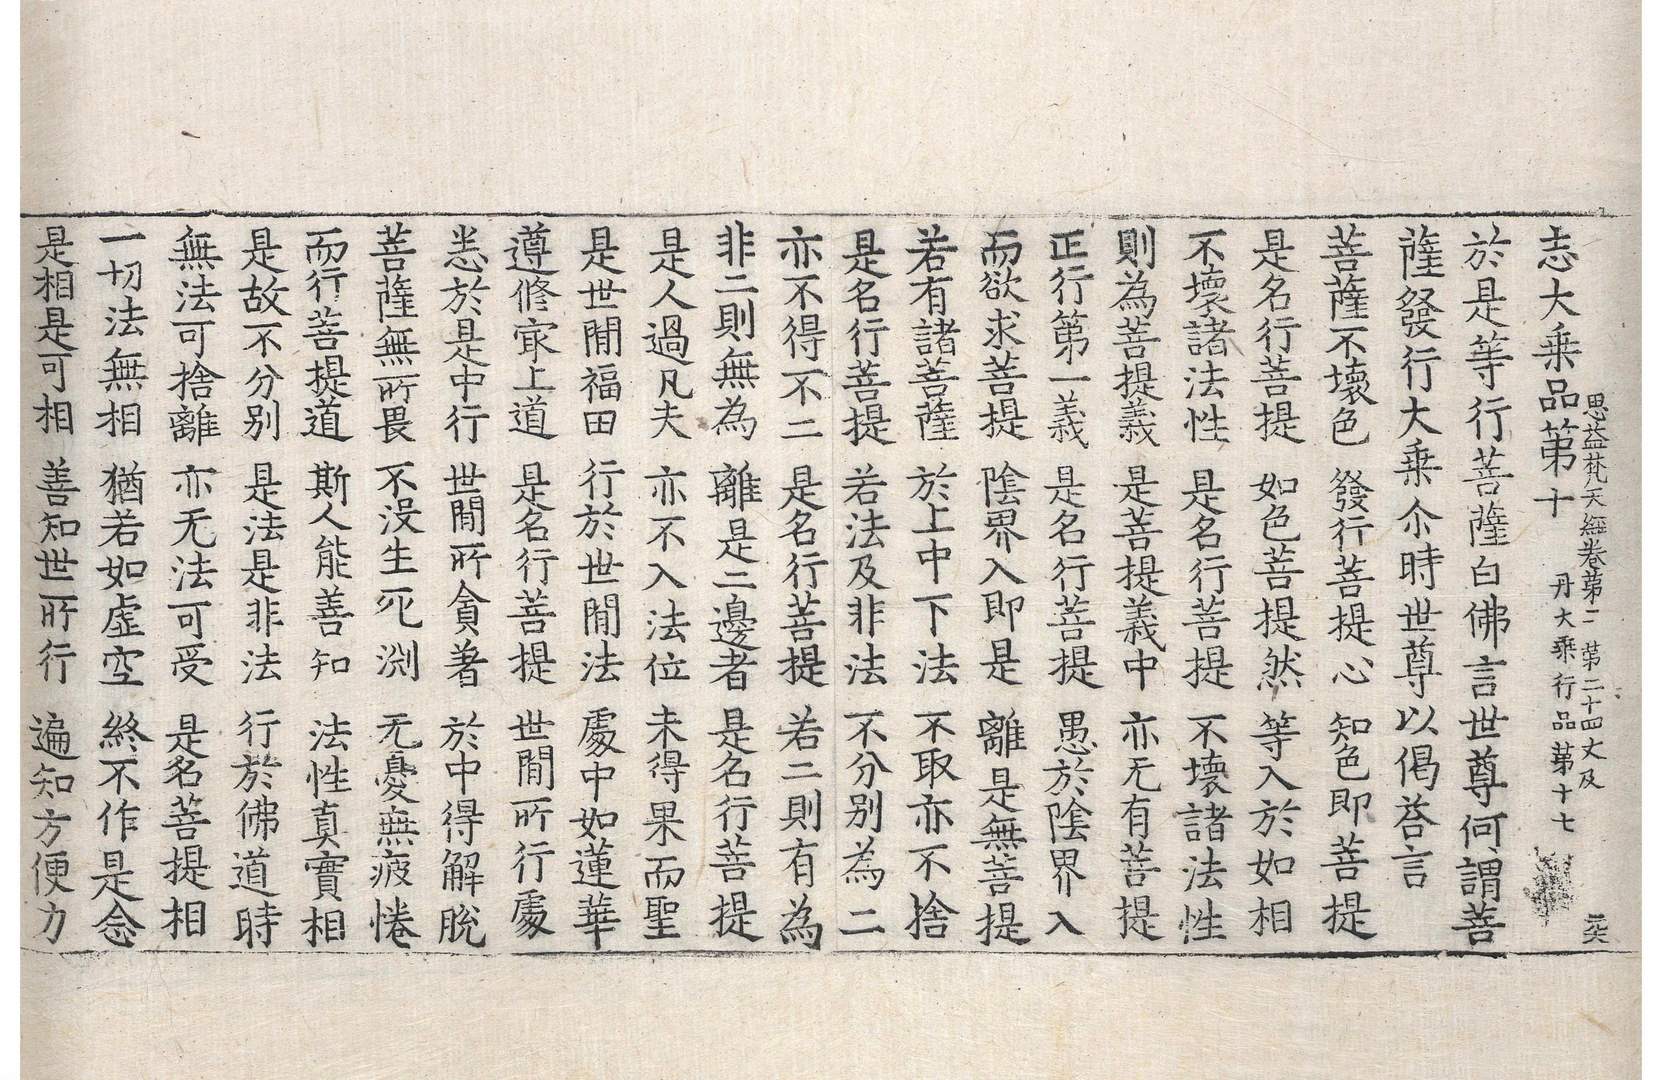 思益梵天經卷第二 第二十四丈 及
志大乘品第十 丹大乘行品第十七
於是等行菩薩白佛言世尊何謂菩
薩發行大乘尒時世尊以偈荅言
菩薩不壞色 發行菩提心 知色即菩提
是名行菩提 如色菩提然 等入於如相
不壞諸法性 是名行菩提 不壞諸法性
則為菩提義 是菩提義中 亦无有菩提
正行第一義 是名行菩提 愚於陰界入
而欲求菩提 陰界入即是 離是無菩提
若有諸菩薩 於上中下法 不取亦不捨
是名行菩提 若法及非法 不分別為二
亦不得不二 是名行菩提 若二則有為
非二則無為 離是二邊者 是名行菩提
是人過凡夫 亦不入法位 未得果而聖
是世閒福田 行於世閒法 處中如蓮華
遵修㝡上道 是名行菩提 世閒所行處
悉於是中行 世閒所貪著 於中得解脫
菩薩無所畏 不沒生死淵 无憂無疲惓
而行菩提道 斯人能善知 法性真實相
是故不分別 是法是非法 行於佛道時
無法可捨離 亦无法可受 是名菩提相
一切法無相 猶若如虛空 終不作是念
是相是可相 善知世所行 遍知方便力